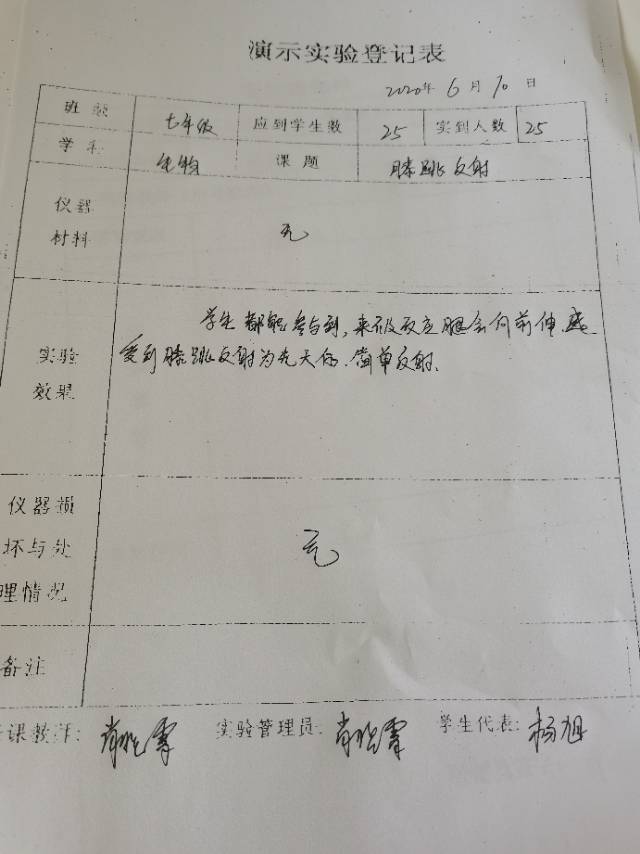 演示实验登记表
2020年 6 月 10 日
班级 七年级 应到学生数 25 实到人数 25
学科 生物 课题 膝跳反射
仪器
材料
无
学生都能参与到,来做反应腿会向前伸,感
受到膝跳反射为先天的、简单反射。
实验
效果
仪器损
坏与处
理情况
无
备注
课教师: 肖 实验管理员: 肖 学生代表: 杨旭